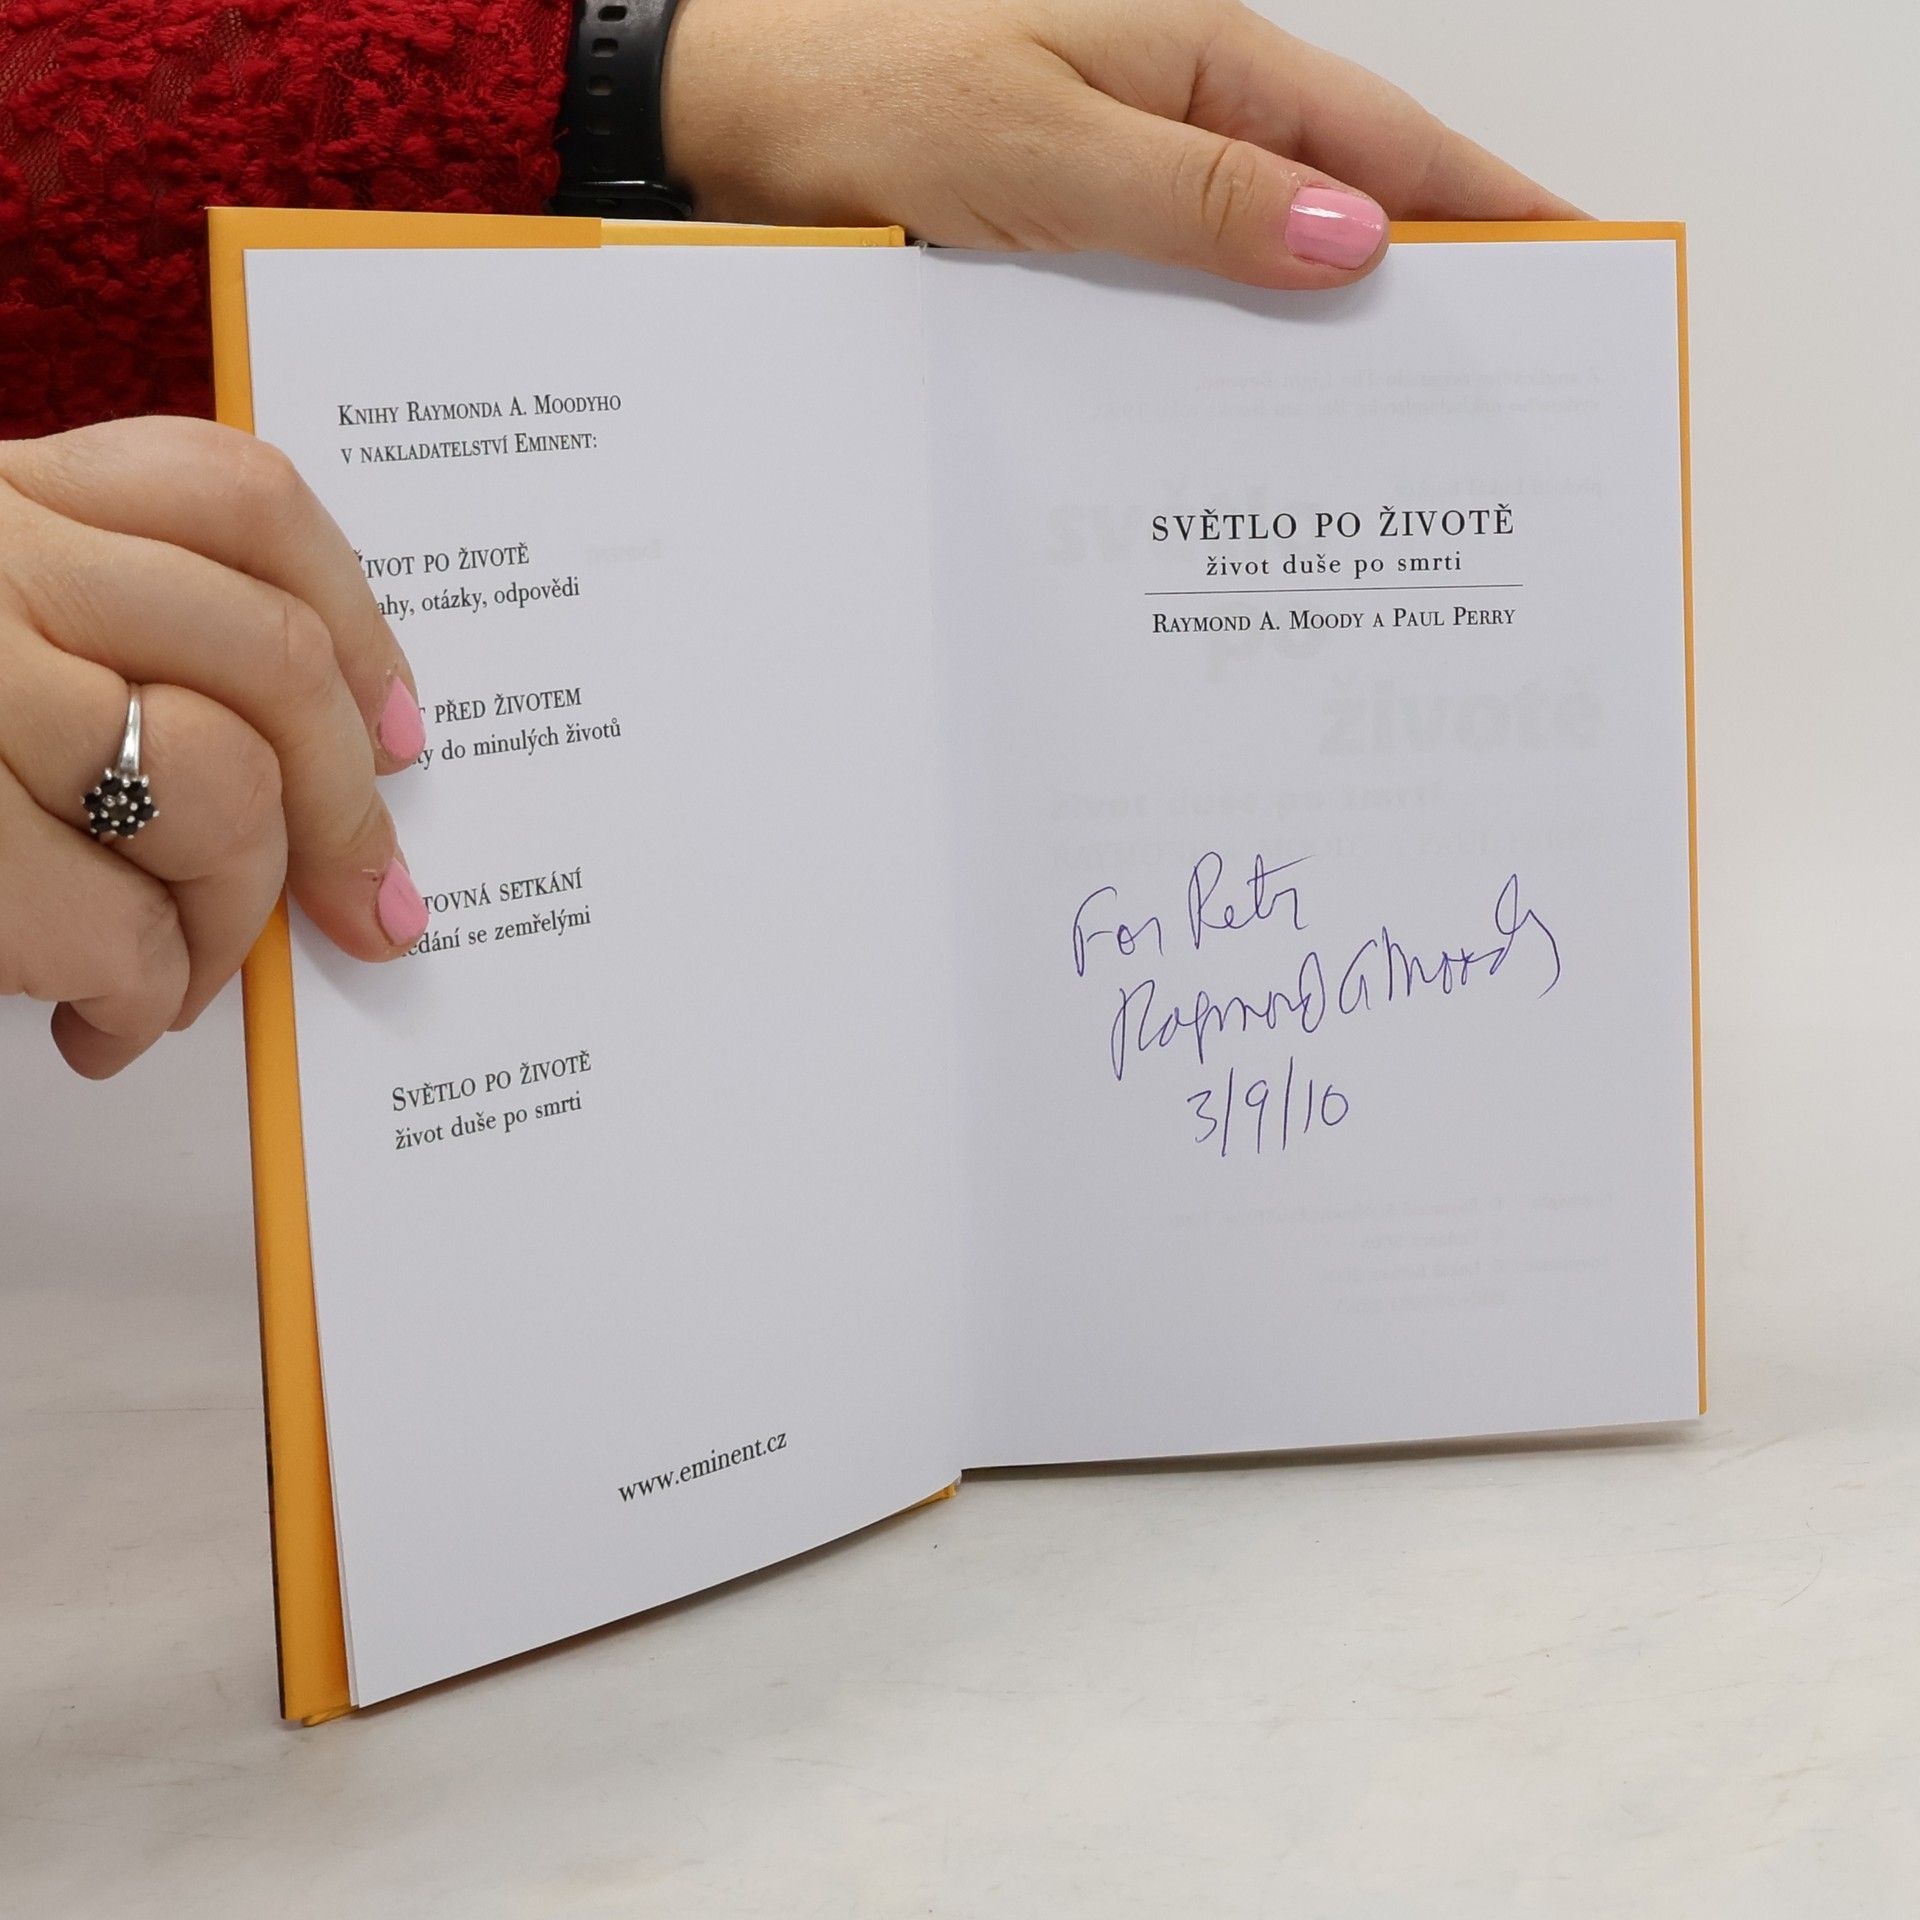 KNIHY RAYMONDA A. MOODYHO
V NAKLADATELSTVÍ EMINENT:
PO ŽIVOTĚ
otázky, odpovědi
PŘED ŽIVOTEM
do minulých životů
SETKÁNÍ
se zemřelými
SVĚTLO PO ŽIVOTĚ
život duše po smrti
www.eminent.cz
SVĚTLO PO ŽIVOTĚ
život duše po smrti
RAYMOND A. MOODY A PAUL PERRY
For Petr
Raymond A Moody
3/9/10